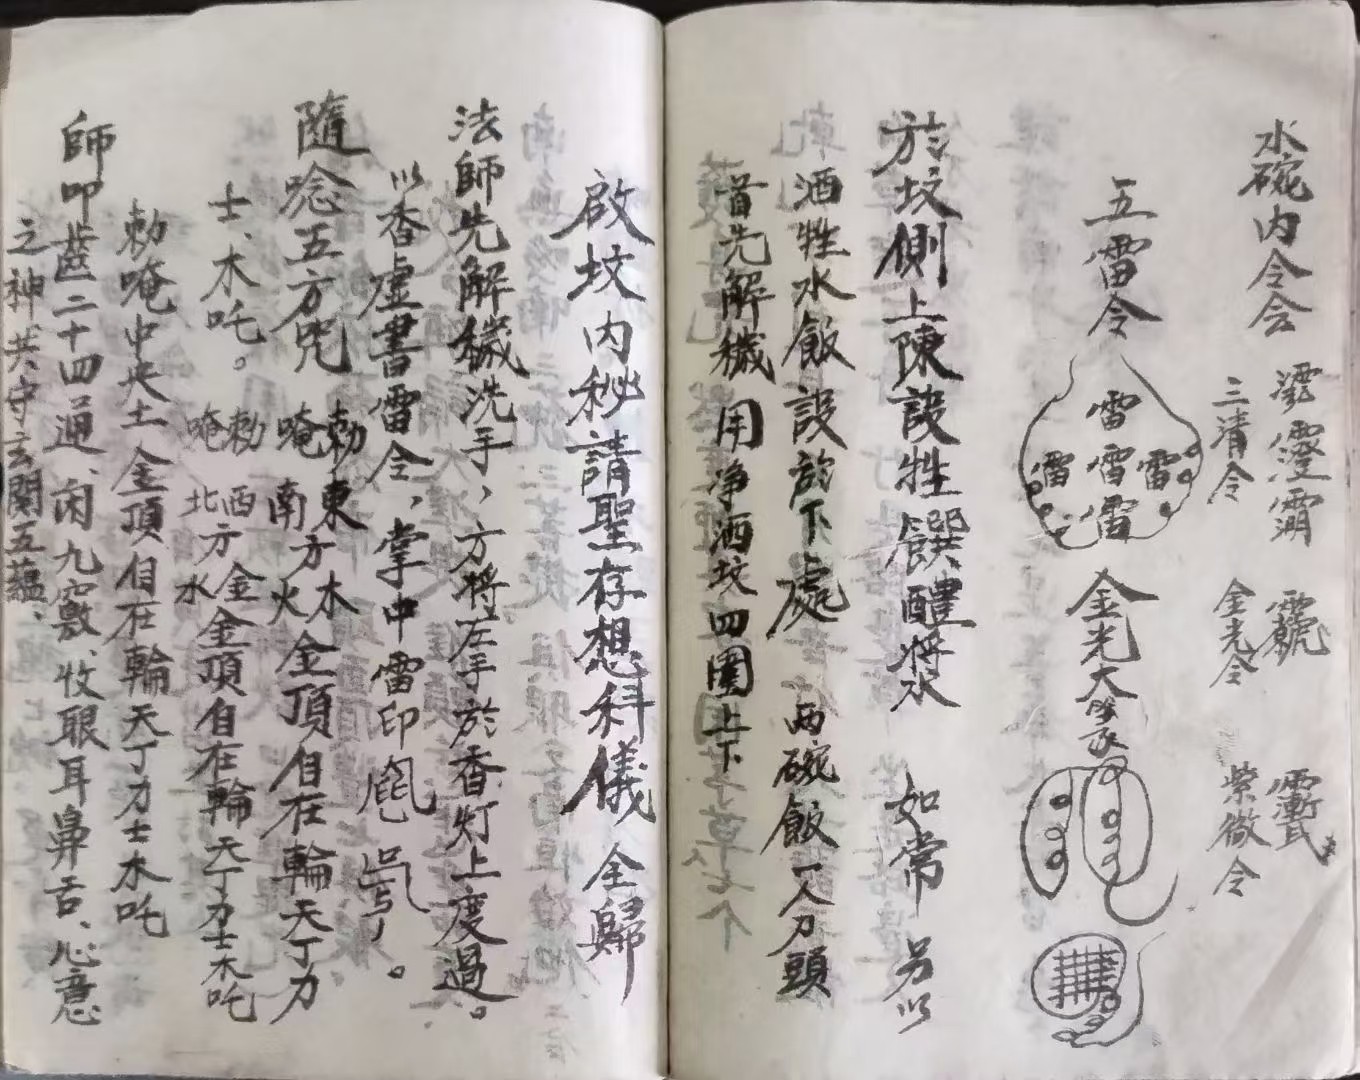 水碗内令会
三清令 金光令 紫微令
五雷令
雷
雷雷雷
雷
金光大篆
於坟側上陳設牲饌醴将水 如常 另以
酒牲水飯設於下處 两碗飯一人刀頭
首先解穢 用净洒坟四圍上下
啟坟内秘請聖存想科儀 全歸
法師先解穢洗手，方将左手於香灯上度過。
以香虚書雷令，掌中雷印
隨唸五方咒 勅唵東南方木火金頂自在輪天丁力
士、木吒。 勅唵西北方金水金頂自在輪天丁力士木吒
勅唵中央土金頂自在輪天丁力士木吒
師叩齒二十四通、闭九竅、收眼耳鼻舌、心意
之神共守玄関五蘊、